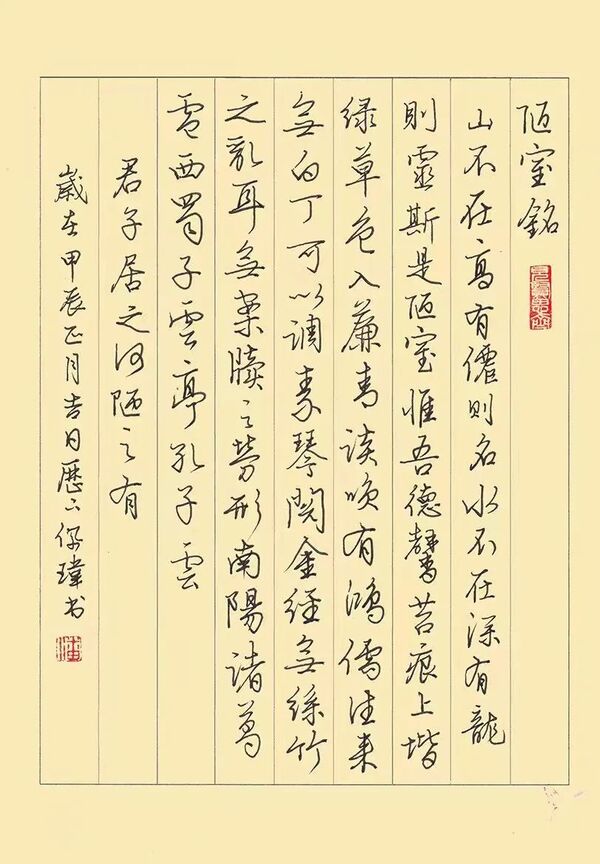 陋室銘
山不在高有僊則名水不在深有龍
則靈斯是陋室惟吾德馨苔痕上堦
绿草色入簾青談咲有鴻儒往来
無白丁可以調素琴閱金經無絲竹
之亂耳無案牘之勞形南陽諸葛
廬西蜀子雲亭孔子雲
君子居之何陋之有
歲在甲辰正月吉日歷下保瑋书